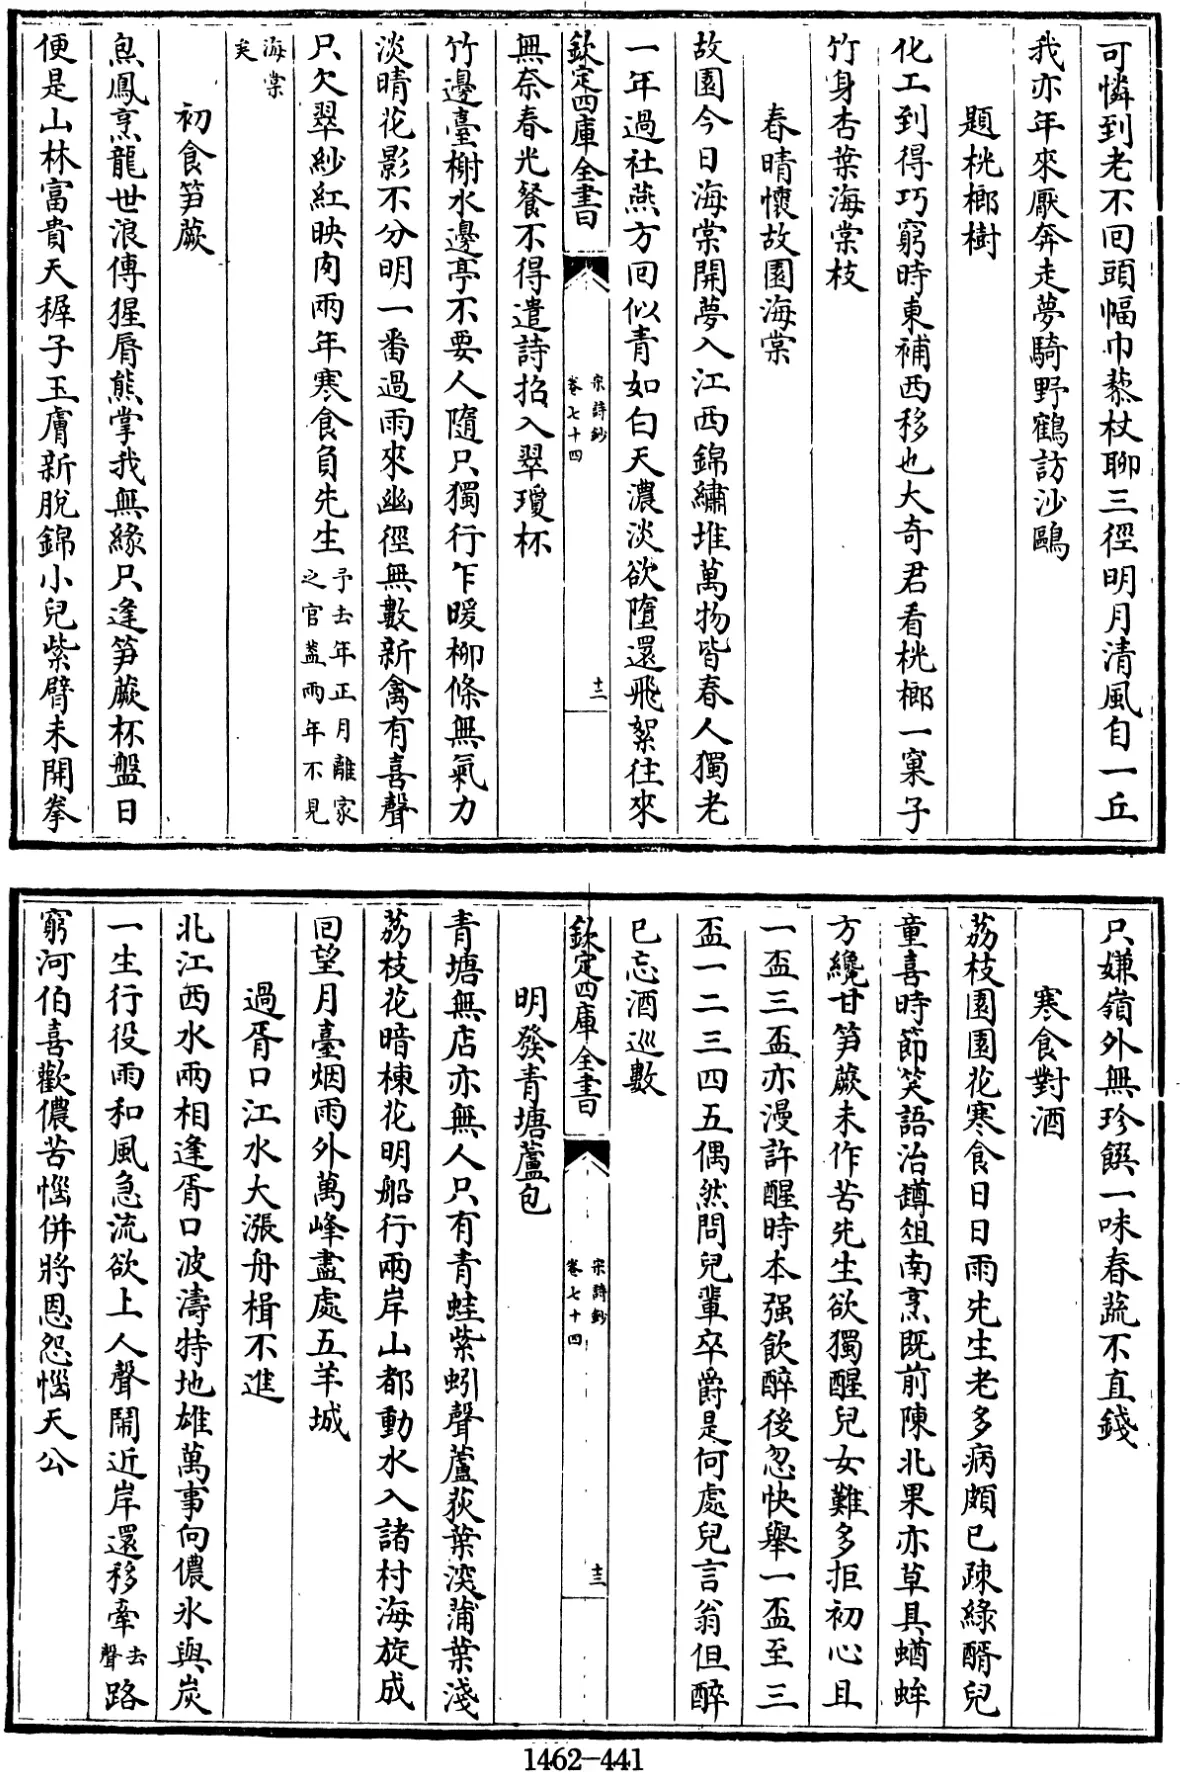 可憐到老不回頭幅巾藜杖聊三徑明月清風自一丘
我亦年來厭奔走夢騎野鶴訪沙鷗
題桄榔樹
化工到得巧窮時東補西移也大奇君看桄榔一窠子
竹身杏葉海棠枝
春晴懷故園海棠
故園今日海棠開夢入江西錦繡堆萬物皆春人獨老
一年過社燕方回似青如白天濃淡欲墮還飛絮往來
欽定四庫全書
宋詩鈔
卷七十四
十二
無奈春光餐不得遣詩招入翠瓊杯
竹邊臺榭水邊亭不要人隨只獨行乍暖柳條無氣力
淡晴花影不分明一番過雨來幽徑無數新禽有喜聲
只欠翠紗紅映肉兩年寒食負先生予去年正月離家
之官葢兩年不見
海棠
矣
初食笋蕨
炰鳳烹龍世浪傳猩脣熊掌我無緣只逢笋蕨杯盤日
便是山林富貴天稺子玉膚新脫錦小兒紫臂未開拳
只嫌嶺外無珍饌一味春蔬不直錢
寒食對酒
荔枝園園花寒食日日雨先生老多病頗已疎綠醑兒
童喜時節笑語治罇俎南烹既前陳北果亦草具蝤蛑
方纔甘笋蕨未作苦先生欲獨醒兒女難多拒初心且
一盃三盃亦漫許醒時本强飲醉後忽快舉一盃至三
盃一二三四五偶然問兒輩卒爵是何處兒言翁但醉
已忘酒巡數
欽定四庫全書
宋詩鈔
卷七十四
十三
明發青塘蘆包
青塘無店亦無人只有青蛙紫蚓聲蘆荻葉深蒲葉淺
荔枝花暗楝花明船行兩岸山都動水入諸村海旋成
回望月臺烟雨外萬峰盡處五羊城
過胥口江水大漲舟楫不進
北江西水兩相逢胥口波濤特地雄萬事向儂氷與炭
一生行役雨和風急流欲上人聲鬧近岸還移牽去聲路
窮河伯喜歡儂苦惱併將恩怨惱天公
1462-441